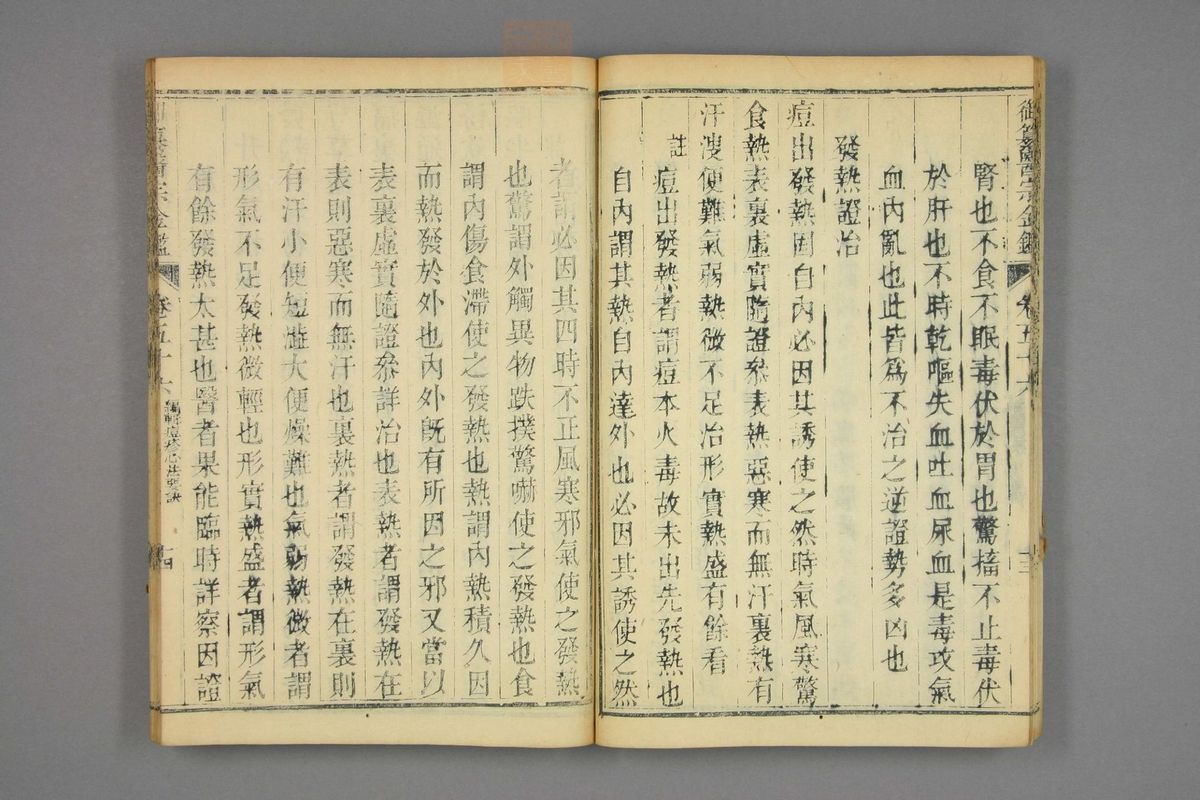 御纂醫宗金鑑
卷五十六
十三
腎也不食不眠毒伏於胃也驚搐不止毒伏
於肝也不時乾嘔失血吐血尿血是毒攻氣
血內亂也此皆爲不治之逆證勢多凶也
發熱證治
痘出發熱因自內必因其誘使之然時氣風寒驚
食熱表裏虛實隨證叅表熱惡寒而無汗裏熱有
汗溲便難氣弱熱微不足治形實熱盛有餘看
註
痘出發熱者謂痘本火毒故未出先發熱也
自內謂其熱自內達外也必因其誘使之然
者謂必因其四時不正風寒邪氣使之發熱
也驚謂外觸異物跌撲驚嚇使之發熱也食
謂內傷食滯使之發熱也熱謂內熱積久因
而熱發於外也內外既有所因之邪又當以
表裏虛實隨證叅詳治也表熱者謂發熱在
表則惡寒而無汗也裏熱者謂發熱在裏則
有汗小便短澁大便燥難也氣弱熱微者謂
形氣不足發熱微輕也形實熱盛者謂形氣
有餘發熱太甚也醫者果能臨時詳察因證
醫宗金鑑
卷五十六
編輯痘疹心法要訣
十四